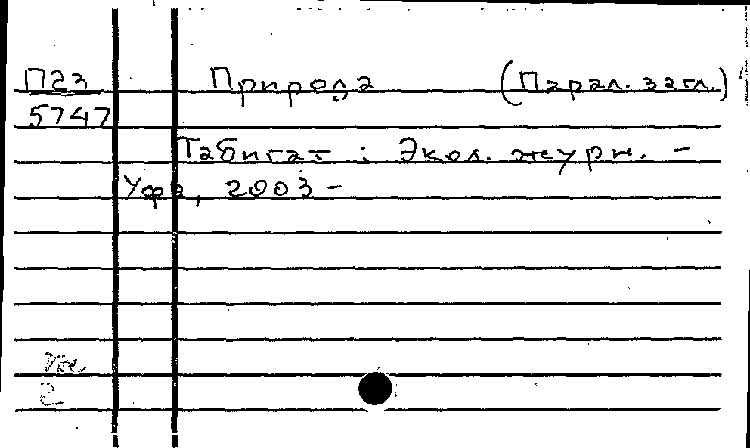 П23 Природа (Парал. загл.)
5747
Табигат : Экол. журн. –
Уфа, 2003 –
2